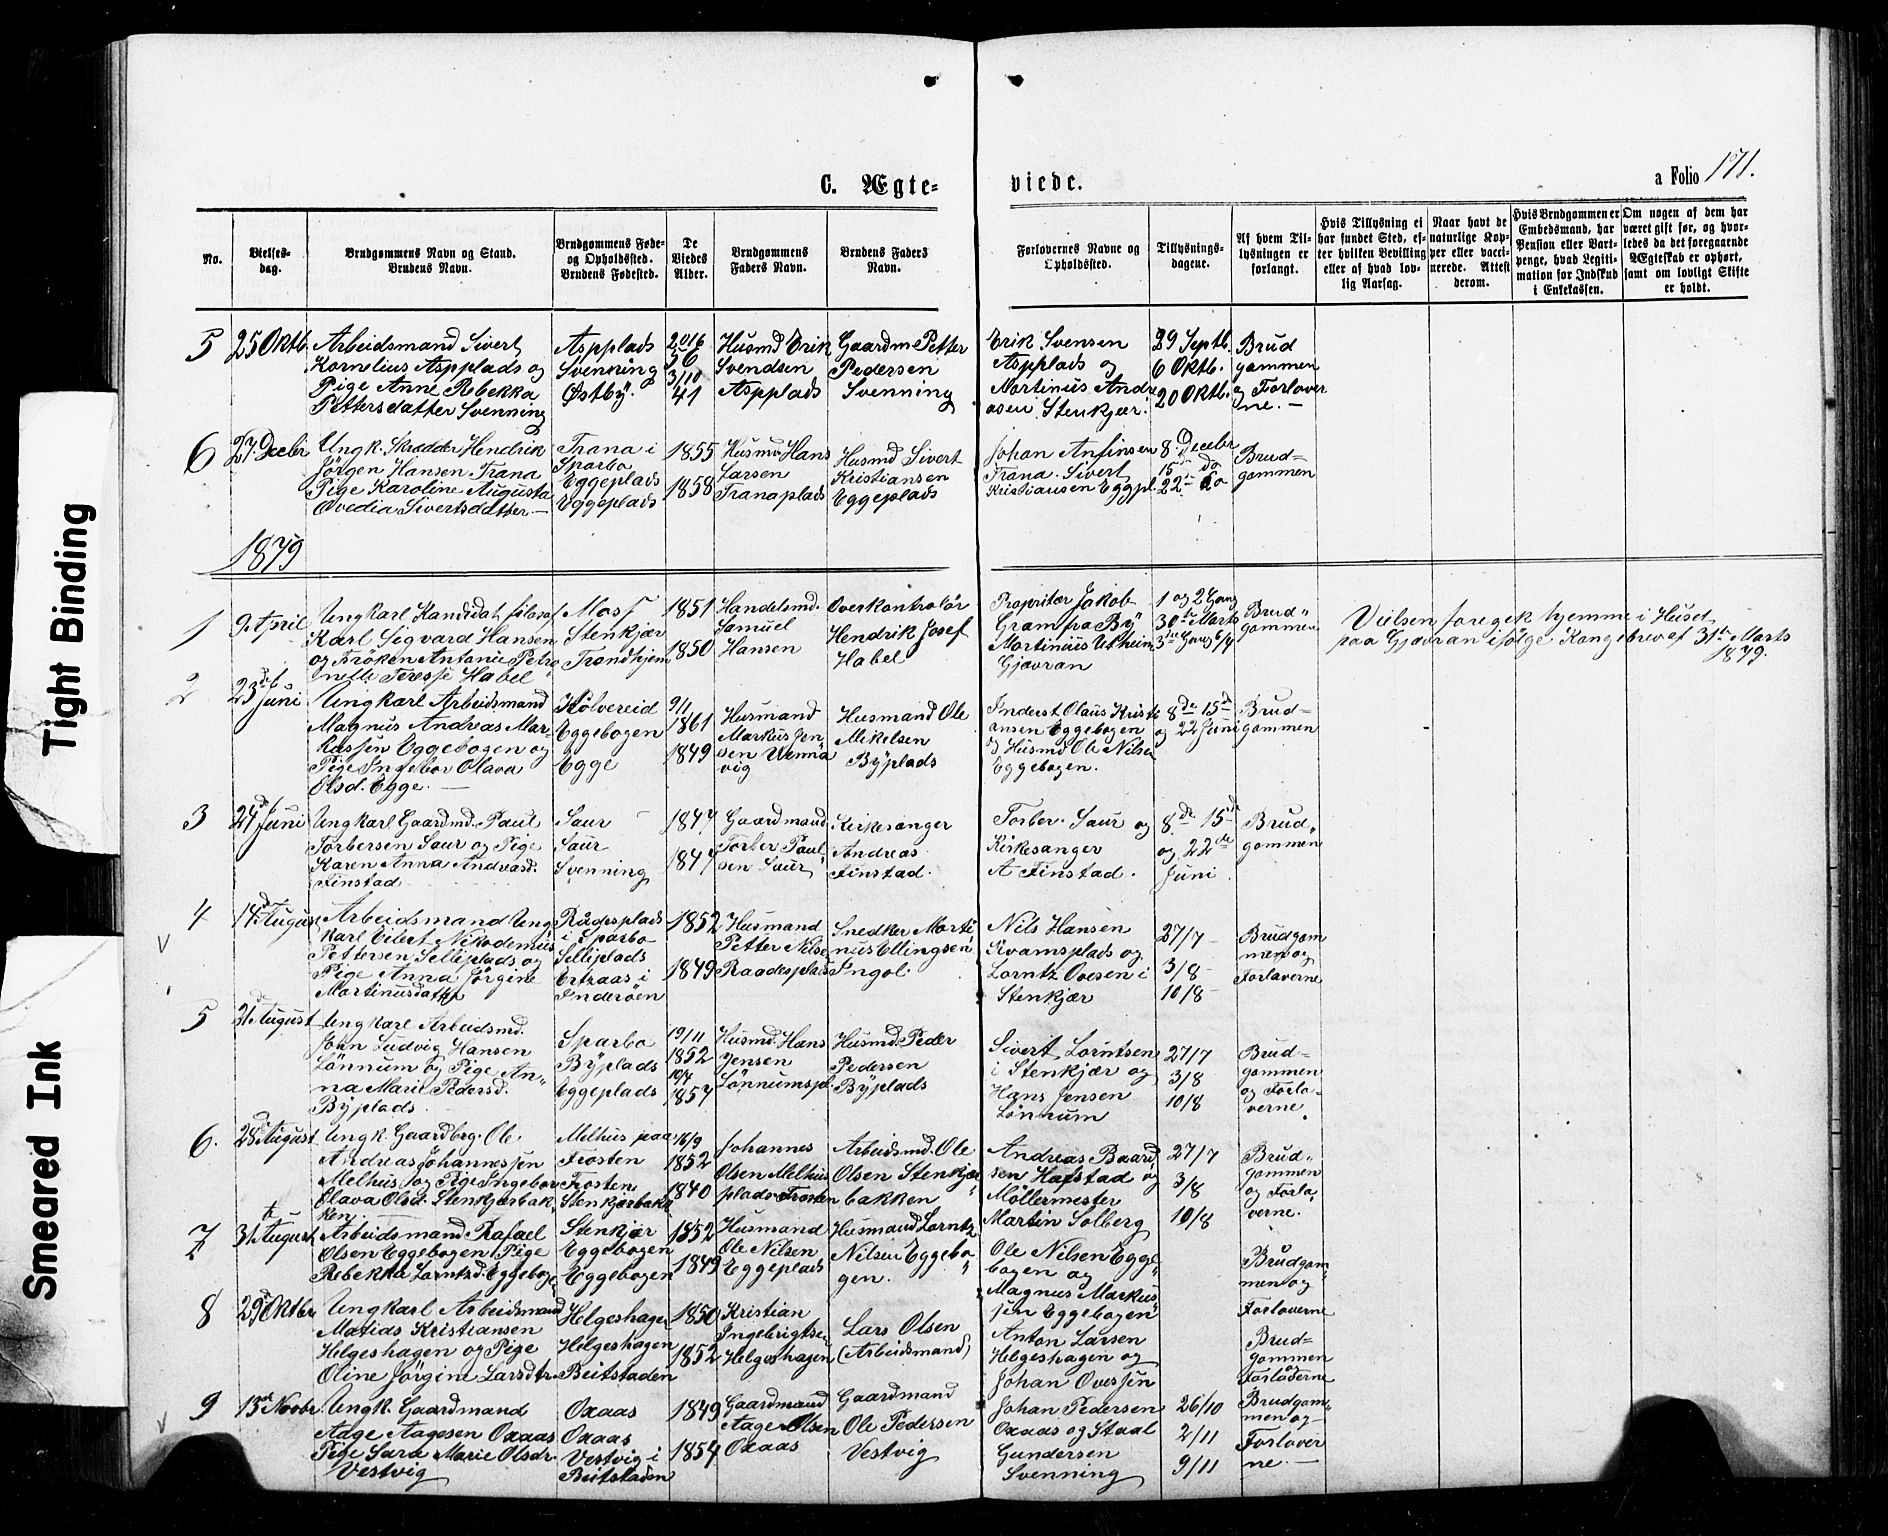 Tight Binding
Smeared Ink
C. Ægte-
viede.
a Folio 171.
No.
Vielses-
dag.
Brudgommens Navn og Stand.
Brudens Navn.
Brudgommens Føde-
og Opholdssted.
Brudens Fødested.
De
Viedes
Alder.
Brudgommens
Faders Navn.
Brudens Faders
Navn.
Forlovernes Navne og
Opholdssted.
Tillysnings-
dagene.
Af hvem Til-
lysningen er
forlangt.
Hvis Tillysning ei
har fundet Sted, ef-
ter hvilken Bevilling
eller af hvad lov-
lig Aarsag.
Naar havt de
naturlige Kop-
per eller vacci-
nerede. Attest
derom.
Hvis Brudgommen er
Embedsmand, har
Pension eller Vart-
penge, hvad Legiti-
mation for Indskud
i Enkekassen.
Om nogen af dem har
været gift før, og hvor-
ledes da det foregaaende
Ægteskab er ophørt,
samt om lovligt Skifte
er holdt.
5
25 Oktb
Arbeidsmand Sivert
Kornelius Aspplads og
Pige Anne Rebekka
Pettersdatter Svenning
Aspplads
Svenning
Østby.
56
3/10
41
Husmd Erik
Svendsen
Aspplads
Gaardm Petter
Pedersen
Svenning
Erik Svensen
Aspplads og
Martinus Andre
asen Stenkjær.
29 Septb.
6 Oktb.
20 Oktb.
Brud
gommen
og Forlover
ne. —
6
27 Decbr
Ungk. Skrædder Hendrik
Jörgen Hansen Trana
Pige Karoline Augusta
Ovedia Sivertsdatter —
Trana i
Sparbo
Eggeplads
Eggeplads
1855
1858
Husmd Hans
Larsen
Tranaplads
Husmd Sivert
Kristiansen
Eggeplads
Johan Anfinsen
Trana. Sivert
Kristiansen Eggpl.
8 Decebr
15 do
22 do
Brud=
gommen
1879
1
9 April
Ungkarl Kandidat filosof
Karl Sigvard Hansen
og Fröken Antonie Petro
nelle Teresse Habel
Moss
Stenkjær
Trondhjem
1851
1850
Handelsmd.
Samuel
Hansen
Overkontrolör
Hendrik Josef
Habel
Propritær Jakob
Gram paa By
Martinius Utheim
Gjævran
1 og 2 Gang
30te Marts
3die Gang 6/4
Brud"
gommen
Vielsen foregik hjemme i Huset
paa Gjævran ifölge Kongebrev af 31te Marts
1879.
2
23d Juni
Ungkarl Arbeidsmand
Magnus Andreas Mar-
kussen Eggebogen og
Pige Ingebor Olava
Olsd. Egge. —
Kolvereid
Eggebogen
Egge
9/1
1861
1849
Husmand
Markus Jen
sen Vennä
vig
Husmand Ole
Mikelsen
Byplads
Inderst Olaus Kristi
ansen Eggebogen
og Husmd Ole Nilsen
Eggebogen.
8de 15de
og 22 Juni
Brud=
gommen
3
24d Juni
Ungkarl Gaardmd. Paul
Torbersen Saur og Pige
Karen Anna Andreasd.
Finstad
Saur
Saur
Svenning
1847
1847
Gaardmand
Torber Paul
sen Saur
Kirkesanger
Andreas
Finstad.
Torber. Saur og
Kirkesanger
A Finstad.
8de 15de
og 22de
Juni.
Brud"
gommen
4
14d August
Arbeidsmand Ung
karl Eilert Nikodemus
Pettersen Selliplads og
Pige Anna Jörgine
Martinusdatter
Rådesplads
i Sparbo
Selliplads
Ertzaas i
Inderöen
1852
1849
Husmand
Petter Nilsen
Raadesplads
Snedker Marti
nus Ellingsen
Ingol.
Nils Hansen
Kvamsplads og
Lorntz Ovesen i
Stenkjær
27/7
3/8
10/8
Brudgom
men og
Forloverne
5
21 August
Ungkarl Arbeidsmd.
John Ludvig Hansen
Lönnum og Pige An"
na Marie Pedersd.
Byplads
Sparbo
Byplads
Eggeplads
19/11
1852
10/7
1857
Husmd. Hans
Jensen
Lönnumspl
Husmd. Peder
Pedersen
Byplads
Sivert Lorntsen
i Stenkjær og
Hans Jensen
Lönnum
27/7
3/8
10/8
Brud=
gommen
og Forlo-
verne.
6.
28d August
Ungk. Gaardbrg. Ole
Andreas Johannessen
Melhus og Pige Ingebor
Olava Olsd. Stenkjærbak
ken
Melhus paa
Frosten
Frosten
Stenkjærbakk
16/9
1852
1840
Johannes
Olsen Melhus
plads Frosten
Arbeidsmd. Ole
Olsen Stenkjær
bakken
Andreas Baard
sen Hafstad og
Möllermester
Martin Solberg
27/7
3/8
10/8
Brud"
gommen
og Forlo
verne.
7
31 August
Arbeidsmand Rafael
Olsen Eggebogen Pige
Rebekka Lorntzd. Eggeboge
Stenkjær
Eggebogen
Eggebogen
1852
1849
Husmand
Ole Nilsen
Eggeplads
Husmand Lorntz
Nilsen Eggebo
gen.
Ole Nilsen Egge
bogen og
Magnus Markus
sen Eggebogen
Brudgom
men og
Forloverne
8
29 Oktbr
Ungkarl Arbeidsmand
Matids Kristiansen
Helgeshagen og Pige
Oline Jörgine Larsdtr.
Helgeshagen
Helgeshagen
Beitstaden
1850
1852
Kristian
Ingebrigtsen
Helgeshagen
Lars Olsen
(Arbeidsmand)
Anton Larsen
Helgeshagen og
Johan Ovessen
Brud=
gommen
og
Forloverne
9
13 Novbr
Ungk. Gaardmand
Aage Aagesen Oxaas
Pige Sara Marie Olsdr.
Vestvig
Oxaas
Oxaas
Vestvig i
Beitstaden
1849
1854
Gaardmand
Aage Olsen
Oxaas
Gaardmand
Ole Pedersen
Vestvig
Johan Pedersen
Oxaas og Staal
Gundersen
Svenning
26/10
2/11
9/11
Brudgom
men og
Forlover
ne. —